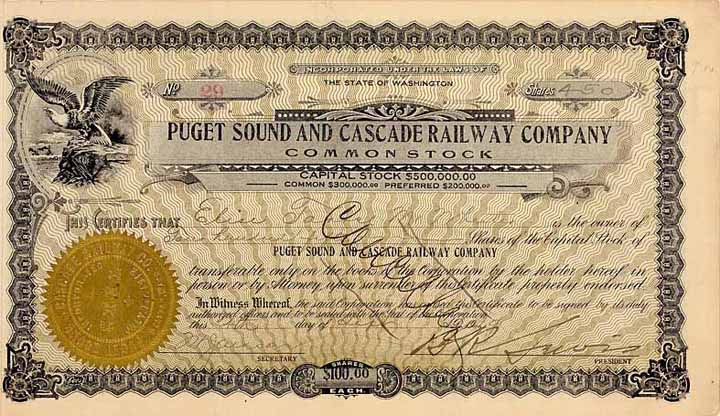 INCORPORATED UNDER THE LAWS OF
THE STATE OF WASHINGTON
No. 29
Shares 450
PUGET SOUND AND CASCADE RAILWAY COMPANY
COMMON STOCK
CAPITAL STOCK $500,000.00
COMMON $300,000.00 PREFERRED $200,000.00
THIS CERTIFIES THAT is the owner of
Shares of the Capital Stock of
PUGET SOUND AND CASCADE RAILWAY COMPANY
transferable only on the books of the Corporation by the holder hereof in
person or by Attorney upon surrender of this certificate properly endorsed.
In Witness Whereof, the said Corporation has caused this certificate to be signed by its duly
authorized officers and to be sealed with the Seal of the Corporation
this day of
SECRETARY
PRESIDENT
SHARES
$100.00
EACH